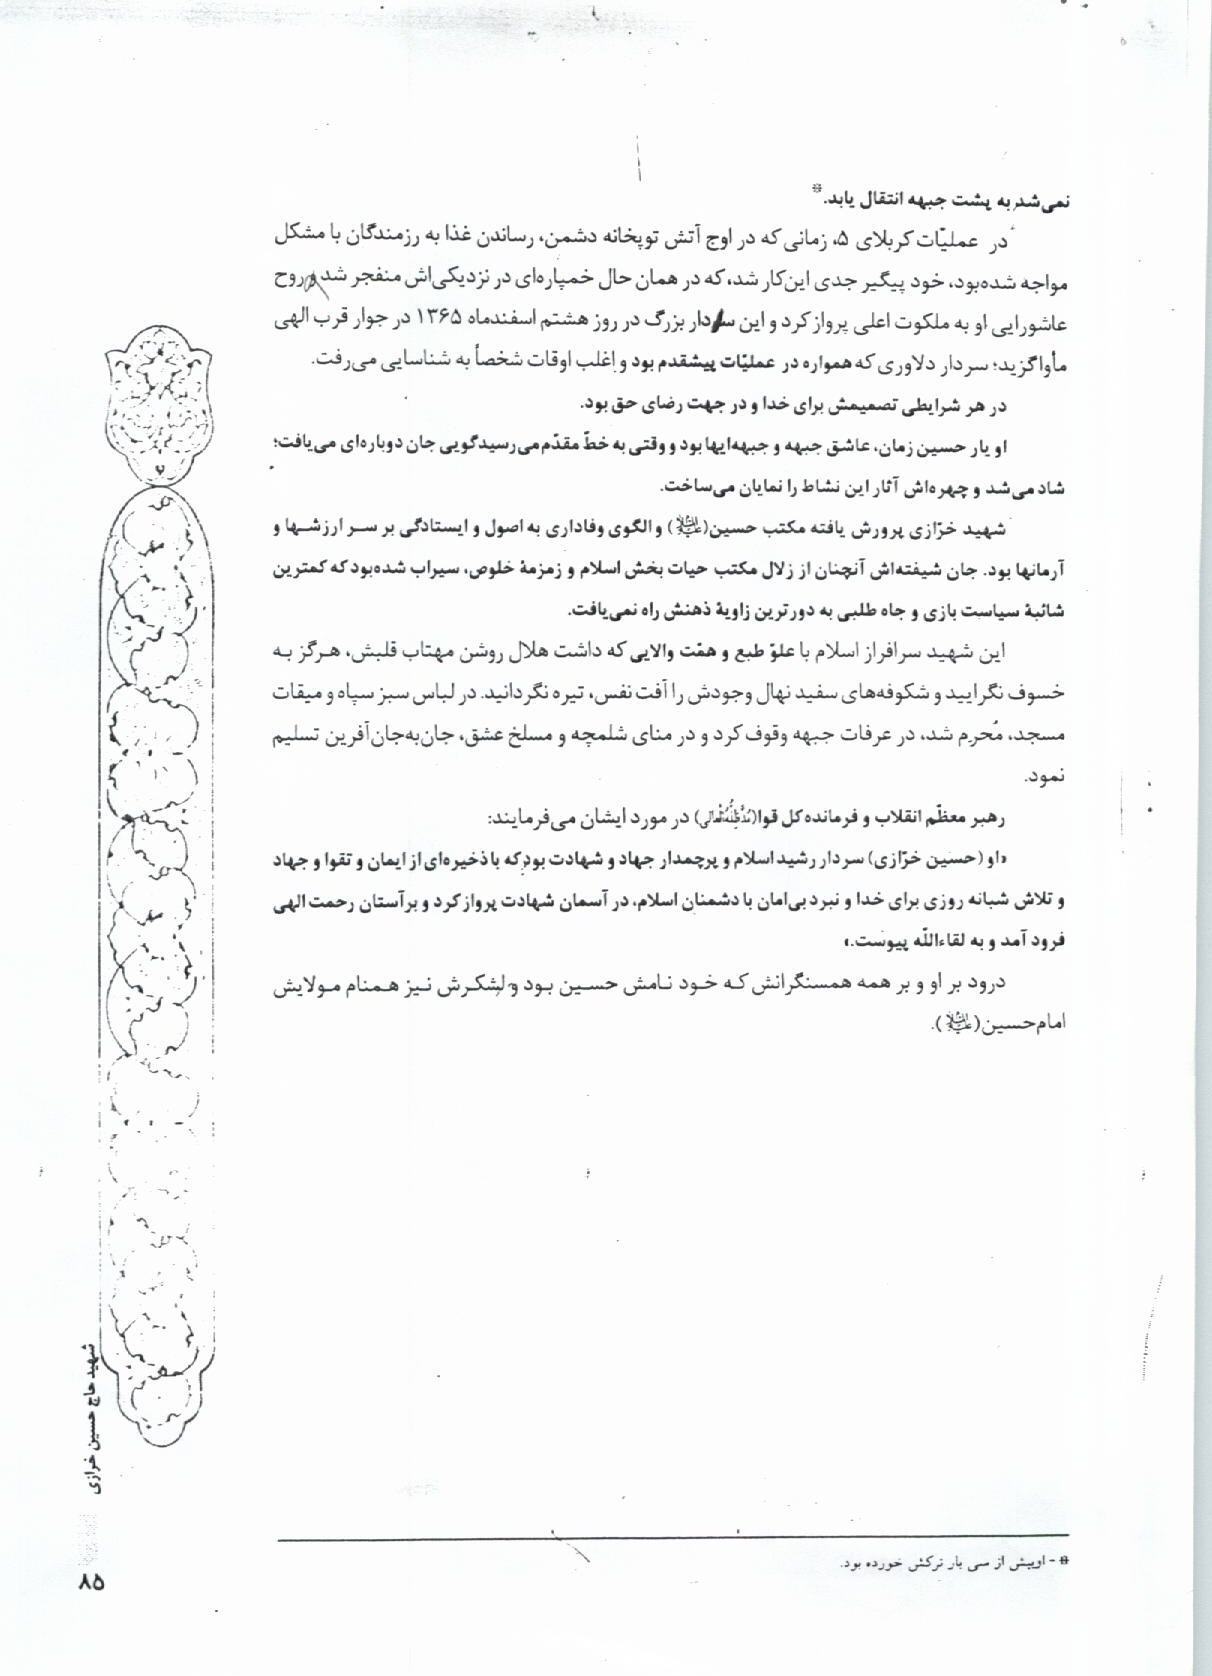 نمی‌شد به پشت جبهه انتقال یابد.*
در عملیّات کربلای ۵، زمانی که در اوج آتش توپخانه دشمن، رساندن غذا به رزمندگان با مشکل
مواجه شده‌بود، خود پیگیر جدی این‌کار شد، که در همان حال خمپاره‌ای در نزدیکی‌اش منفجر شد و روح
عاشورایی او به ملکوت اعلی پرواز کرد و این سردار بزرگ در روز هشتم اسفندماه ۱۳۶۵ در جوار قرب الهی
مأوا گزید؛ سردار دلاوری که همواره در عملیّات پیشقدم بود و اغلب اوقات شخصاً به شناسایی می‌رفت.
در هر شرایطی تصمیمش برای خدا و در جهت رضای حق بود.
او یار حسین زمان، عاشق جبهه و جبهه‌ایها بود و وقتی به خطّ مقدّم می‌رسید گویی جان دوباره‌ای می‌یافت؛
شاد می‌شد و چهره‌اش آثار این نشاط را نمایان می‌ساخت.
شهید خرّازی پرورش یافته مکتب حسین(علیه‌السلام) و الگوی وفاداری به اصول و ایستادگی بر سر ارزشها و
آرمانها بود. جان شیفته‌اش آنچنان از زلال مکتب حیات بخش اسلام و زمزمهٔ خلوص، سیراب شده‌بود که کمترین
شائبهٔ سیاست بازی و جاه طلبی به دورترین زاویهٔ ذهنش راه نمی‌یافت.
این شهید سرافراز اسلام با علوّ طبع و همّت والایی که داشت هلال روشن مهتاب قلبش، هرگز به
خسوف نگرایید و شکوفه‌های سفید نهال وجودش را آفت نفس، تیره نگردانید. در لباس سبز سپاه و میقات
مسجد، مُحرم شد، در عرفات جبهه وقوف کرد و در منای شلمچه و مسلخ عشق، جان‌به‌جان‌آفرین تسلیم
نمود.
رهبر معظّم انقلاب و فرمانده کل قوا(مدّظلّه‌العالی) در مورد ایشان می‌فرمایند:
«او (حسین خرّازی) سردار رشید اسلام و پرچمدار جهاد و شهادت بود که با ذخیره‌ای از ایمان و تقوا و جهاد
و تلاش شبانه روزی برای خدا و نبرد بی‌امان با دشمنان اسلام، در آسمان شهادت پرواز کرد و بر آستان رحمت الهی
فرود آمد و به لقاءاللّه پیوست.»
درود بر او و بر همه همسنگرانش که خود نامش حسین بود و لشکرش نیز همنام مولایش
امام‌حسین(علیه‌السلام).
شهید حاج حسین خرازی
* - او بیش از سی بار ترکش خورده بود.
۸۵